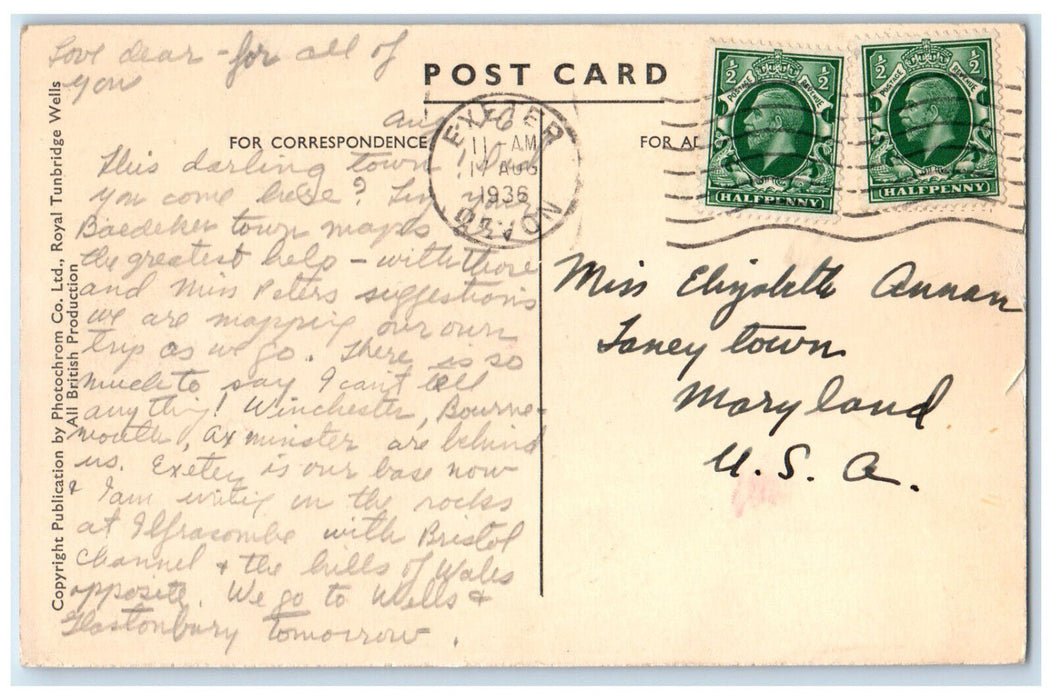 Love dear - for all of
you
POST CARD
FOR CORRESPONDENCE
FOR AD
Aug 16
EXETER
11 AM
17 AUG
1936
DEVON
½ ½
POSTAGE REVENUE
HALFPENNY
½ ½
POSTAGE REVENUE
HALFPENNY
This darling town!
you come here?
Baedeker town maps
the greatest help - with those
and Miss Peters suggestions
we are mapping our own
trip as we go. There is so
much to say I can't tell
anything! Winchester, Bourne-
mouth, Axminster are behind
us. Exeter is our base now
& I am writing on the rocks
at Ilfracombe with Bristol
Channel & the hills of Wales
opposite. We go to Wells &
Glastonbury tomorrow.
Miss Elizabeth Annan
Taneytown
Maryland
U. S. A.
Copyright Publication by Photochrom Co. Ltd., Royal Tunbridge Wells
All British Production